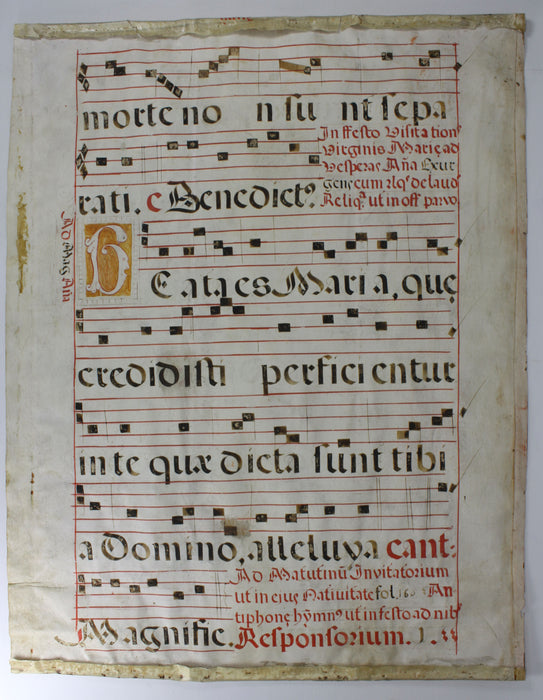 morte no n su nt sepa
In festo Visitation
Virginis Marię ad
Vesperas Aña
gens cum rlq̃s de laud
Reliq̃ ut in off parvo
rati. c Benedict9.
Ad Mag Añ
BE ata es Maria, quę
credidisti perfici entur
in te quæ dicta sunt tibi
a Domino, alleluya cant:
Ad Matutinũ Invitatorium
ut in ejus Nativitate fol. An
tiphonę hỹmn9 ut in festo ad nib
Magnific. Responsorium. 1.